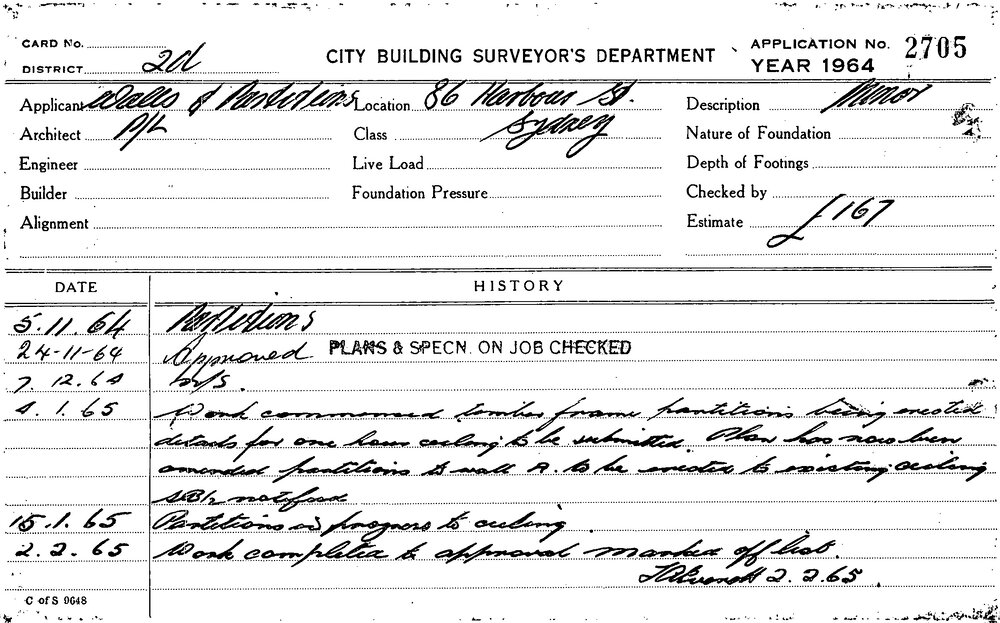 CARD No.
DISTRICT 2d
CITY BUILDING SURVEYOR'S DEPARTMENT
APPLICATION No. 2705
YEAR 1964
Applicant Walls & Partitions
Location 86 Harbour St.
Description Minor
Architect P/L
Class Sydney
Nature of Foundation
Engineer
Live Load
Depth of Footings
Builder
Foundation Pressure
Checked by
Alignment
Estimate £167
DATE HISTORY
5.11.64 Partitions
24-11-64 Approved PLANS & SPECN. ON JOB CHECKED
7.12.64 N/S.
4.1.65 Work commenced timber frame partitions being erected
details for one hour ceiling to be submitted. Plan has now been
amended partitions to wall A. to be erected to existing ceiling
notified
15.1.65 Partitions in progress to ceiling.
2.2.65 Work completed to approval marked off list.
2.2.65.
C of S 9648